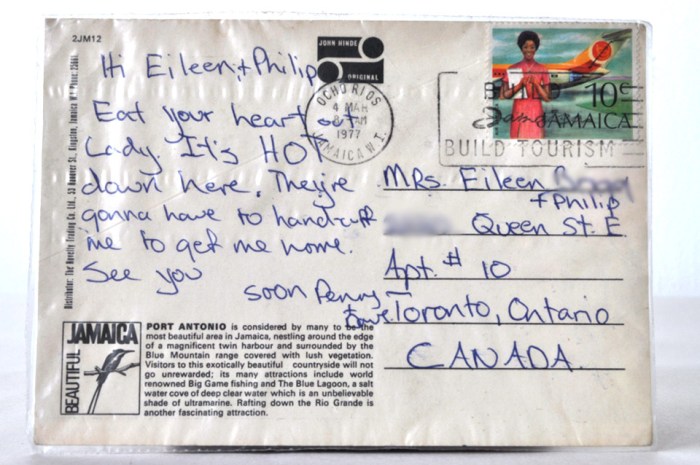 2JM12
JOHN HINDE
ORIGINAL
Hi Eileen + Philip
Eat your heart out
Lady. It's HOT
down here. They're
gonna have to handcuff
me to get me home.
See you
soon Penny
+ Dave
OCHO RIOS
4 MAR
AM
1977
JAMAICA W.I.
10c
JAMAICA
BUILD
JAMAICA
BUILD TOURISM
Mrs. Eileen
+ Philip
Queen St. E
Apt. # 10
Toronto, Ontario
CANADA.
Distributor: The Novelty Trading Co. Ltd., 53 Hanover St., Kingston, Jamaica W.I. Phone:
BEAUTIFUL JAMAICA
PORT ANTONIO is considered by many to be the
most beautiful area in Jamaica, nestling around the edge
of a magnificent twin harbour and surrounded by the
Blue Mountain range covered with lush vegetation.
Visitors to this exotically beautiful countryside will not
go unrewarded; its many attractions include world
renowned Big Game fishing and The Blue Lagoon, a salt
water cove of deep clear water which is an unbelievable
shade of ultramarine. Rafting down the Rio Grande is
another fascinating attraction.